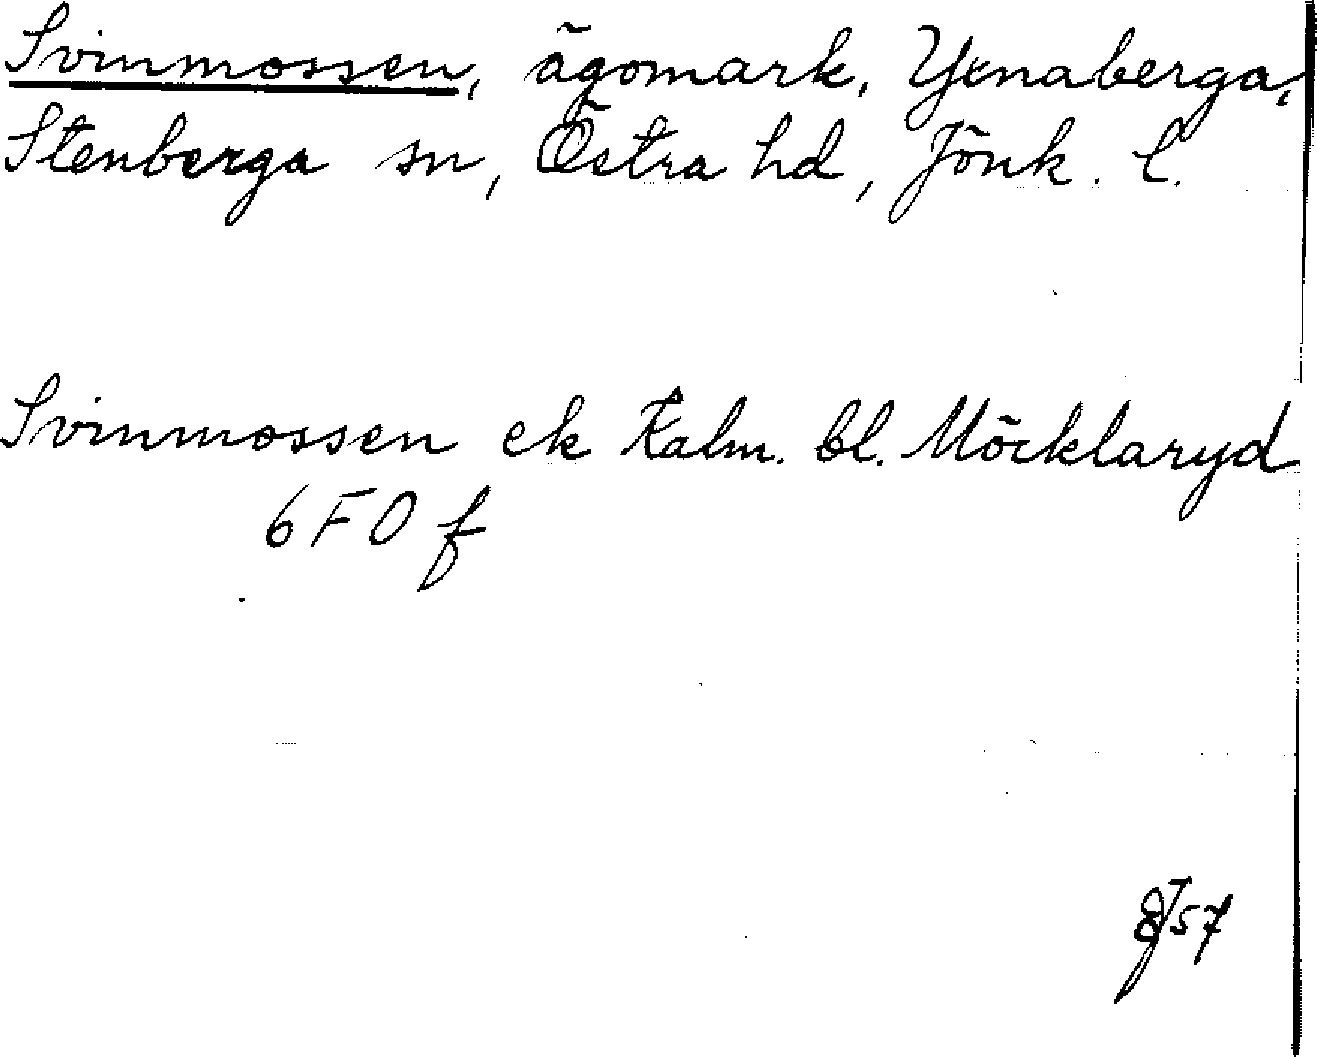 Svinmossen, ägomark, Yxnaberga,
Stenberga sn, Östra hd, Jönk. l.
Svinmossen ek Kalm. bl. Möcklaryd
6 F 0 f
57